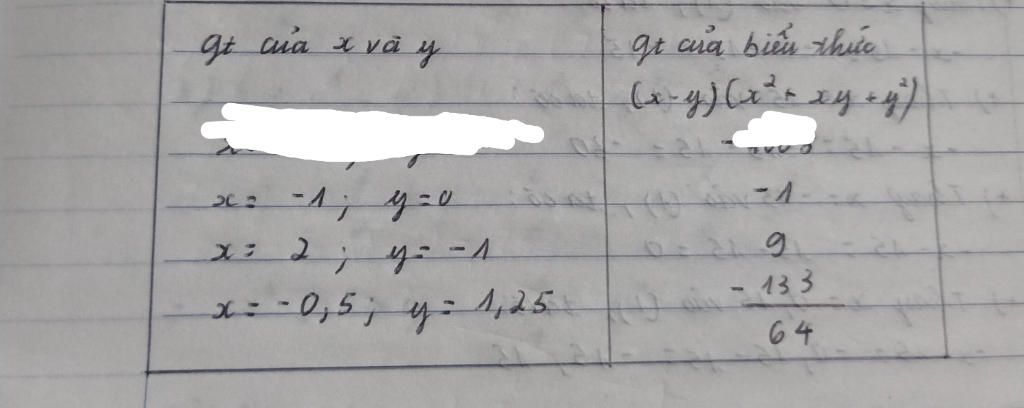 gt của x và y
gt của biểu thức
(x-y)(x²+ xy +y²)
x= -1; y=0
-1
x= 2; y= -1
9
x= -0,5; y= 1,25
-133
64